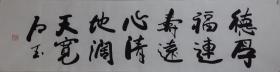 德厚
福連
壽遠
心清
地濶
天寬
石玉